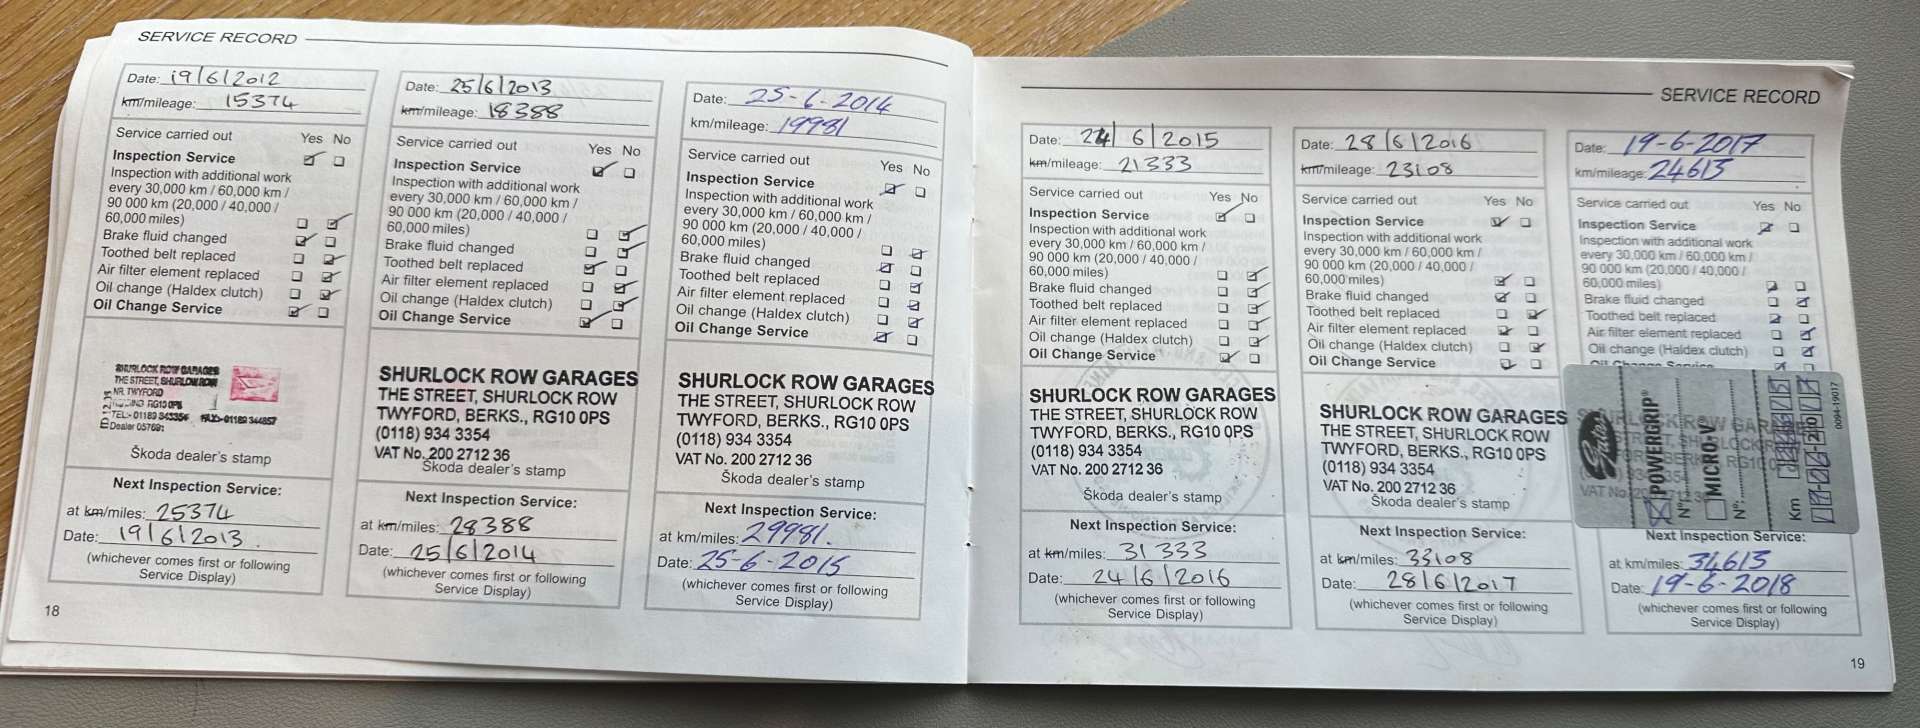 SERVICE RECORD
Date: 19/6/2012
km/mileage: 15374
Service carried out Yes No
Inspection Service
Inspection with additional work
every 30,000 km / 60,000 km /
90 000 km (20,000 / 40,000 /
60,000 miles)
Brake fluid changed
Toothed belt replaced
Air filter element replaced
Oil change (Haldex clutch)
Oil Change Service
SHURLOCK ROW GARAGES
THE STREET, SHURLOCK ROW
NR. TWYFORD
RG10 0PS
TEL:- 01189 343354 FAX:-01189 344857
Dealer 05769:
Škoda dealer's stamp
Next Inspection Service:
at km/miles: 25374
Date: 19/6/2013.
(whichever comes first or following
Service Display)
18
Date: 25/6/2013
km/mileage: 18388
Service carried out Yes No
Inspection Service
Inspection with additional work
every 30,000 km / 60,000 km /
90 000 km (20,000 / 40,000 /
60,000 miles)
Brake fluid changed
Toothed belt replaced
Air filter element replaced
Oil change (Haldex clutch)
Oil Change Service
SHURLOCK ROW GARAGES
THE STREET, SHURLOCK ROW
TWYFORD, BERKS., RG10 0PS
(0118) 934 3354
VAT No. 200 2712 36
Škoda dealer's stamp
Next Inspection Service:
at km/miles: 28388
Date: 25/6/2014
(whichever comes first or following
Service Display)
Date: 25-6-2014
km/mileage: 19981
Service carried out Yes No
Inspection Service
Inspection with additional work
every 30,000 km / 60,000 km /
90 000 km (20,000 / 40,000 /
60,000 miles)
Brake fluid changed
Toothed belt replaced
Air filter element replaced
Oil change (Haldex clutch)
Oil Change Service
SHURLOCK ROW GARAGES
THE STREET, SHURLOCK ROW
TWYFORD, BERKS., RG10 0PS
(0118) 934 3354
VAT No. 200 2712 36
Škoda dealer's stamp
Next Inspection Service:
at km/miles: 29981.
Date: 25-6-2015
(whichever comes first or following
Service Display)
SERVICE RECORD
Date: 24/6/2015
km/mileage: 21333
Service carried out Yes No
Inspection Service
Inspection with additional work
every 30,000 km / 60,000 km /
90 000 km (20,000 / 40,000 /
60,000 miles)
Brake fluid changed
Toothed belt replaced
Air filter element replaced
Oil change (Haldex clutch)
Oil Change Service
SHURLOCK ROW GARAGES
THE STREET, SHURLOCK ROW
TWYFORD, BERKS., RG10 0PS
(0118) 934 3354
VAT No. 200 2712 36
Škoda dealer's stamp
Next Inspection Service:
at km/miles: 31333
Date: 24/6/2016
(whichever comes first or following
Service Display)
Date: 28/6/2016
km/mileage: 23108
Service carried out Yes No
Inspection Service
Inspection with additional work
every 30,000 km / 60,000 km /
90 000 km (20,000 / 40,000 /
60,000 miles)
Brake fluid changed
Toothed belt replaced
Air filter element replaced
Oil change (Haldex clutch)
Oil Change Service
SHURLOCK ROW GARAGES
THE STREET, SHURLOCK ROW
TWYFORD, BERKS., RG10 0PS
(0118) 934 3354
VAT No. 200 2712 36
Škoda dealer's stamp
Next Inspection Service:
at km/miles: 33108
Date: 28/6/2017
(whichever comes first or following
Service Display)
Date: 19-6-2017
km/mileage: 24613
Service carried out Yes No
Inspection Service
Inspection with additional work
every 30,000 km / 60,000 km /
90 000 km (20,000 / 40,000 /
60,000 miles)
Brake fluid changed
Toothed belt replaced
Air filter element replaced
Oil change (Haldex clutch)
Oil Change Service
Gates
POWERGRIP®
N°
MICRO-V®
N°
Km
0094-19017
Next Inspection Service:
at km/miles: 34613
Date: 19-6-2018
(whichever comes first or following
Service Display)
19